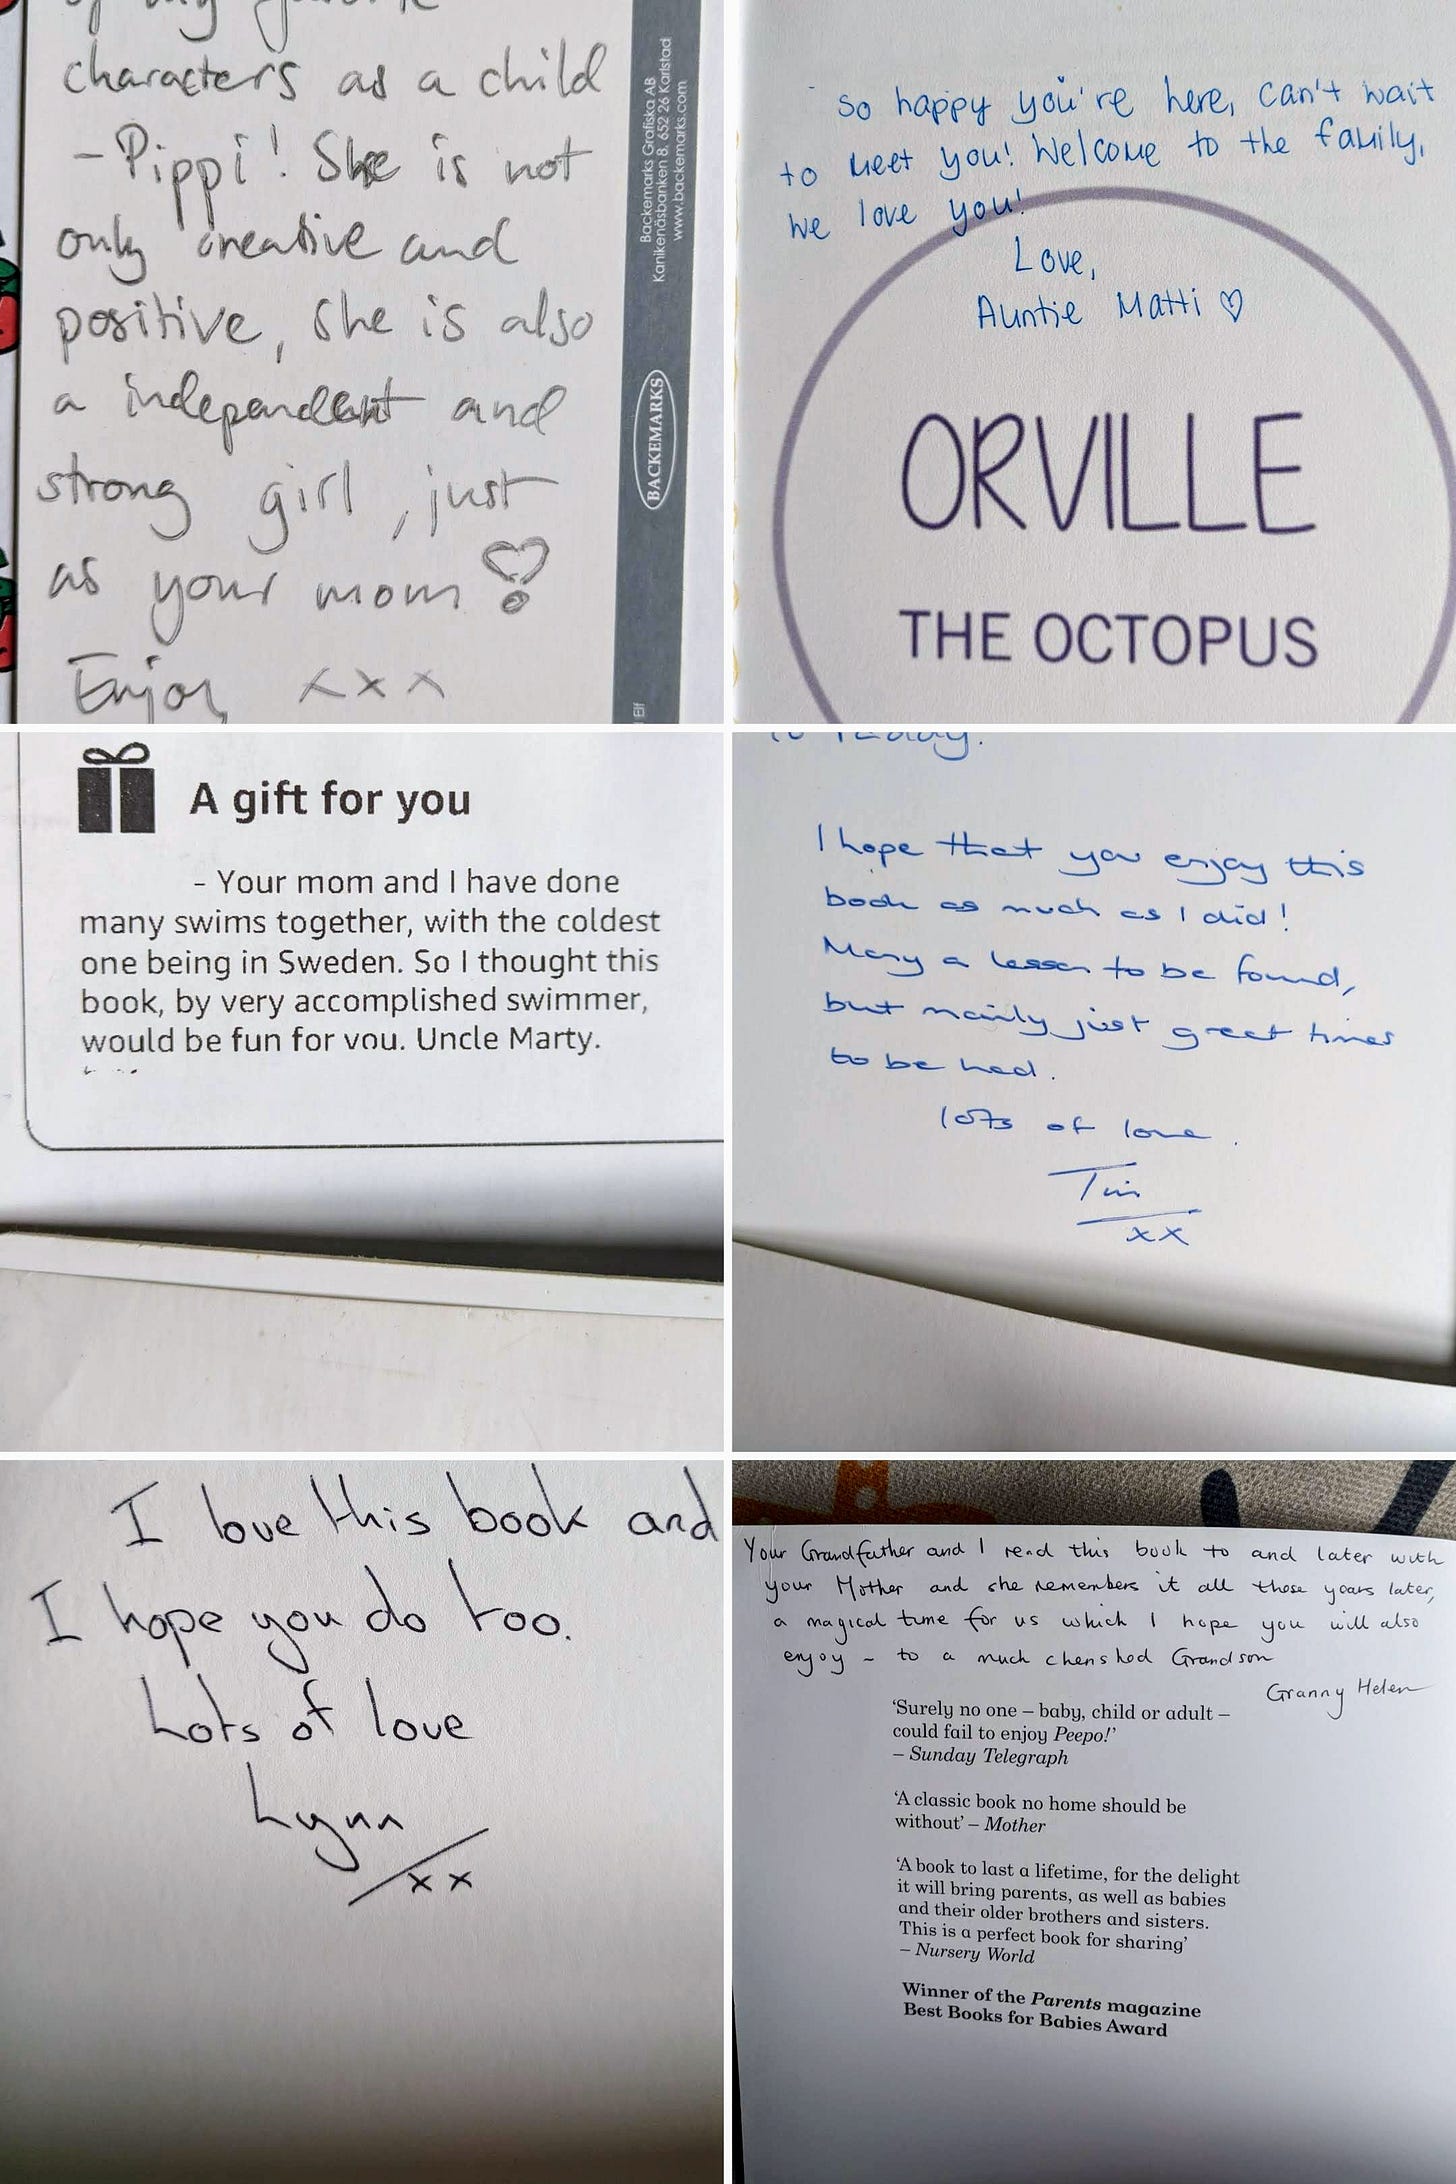 of my favorite
characters as a child
- Pippi! She is not
only creative and
positive, she is also
a independent and
strong girl, just
as your mom
Enjoy xxx
Backemarks Grafiska AB
Kanikenäsbanken 8, 652 26 Karlstad
www.backemarks.com
BACKEMARKS
Elf
So happy you're here, can't wait
to meet you! Welcome to the family,
we love you!
Love,
Auntie Matti ♡
ORVILLE
THE OCTOPUS
A gift for you
- Your mom and I have done
many swims together, with the coldest
one being in Sweden. So I thought this
book, by very accomplished swimmer,
would be fun for you. Uncle Marty.
I hope that you enjoy this
book as much as I did!
Many a lesson to be found,
but mainly just great times
to be had.
lots of love.
Tim
xx
I love this book and
I hope you do too.
Lots of love
Lynn
xx
Your Grandfather and I read this book to and later with
your Mother and she remembers it all these years later,
a magical time for us which I hope you will also
enjoy - to a much cherished Grandson
Granny Helen
‘Surely no one – baby, child or adult –
could fail to enjoy Peepo!’
– Sunday Telegraph
‘A classic book no home should be
without’ – Mother
‘A book to last a lifetime, for the delight
it will bring parents, as well as babies
and their older brothers and sisters.
This is a perfect book for sharing’
– Nursery World
Winner of the Parents magazine
Best Books for Babies Award